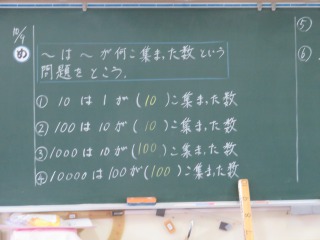 10/9
め
～は～が何こ集まった数という
問題をとこう。
① 10 は 1 が(10)こ集まった数
② 100 は 10 が(10)こ集まった数
③ 1000 は 10 が(100)こ集まった数
④ 10000 は 100 が(100)こ集まった数
⑤
⑥